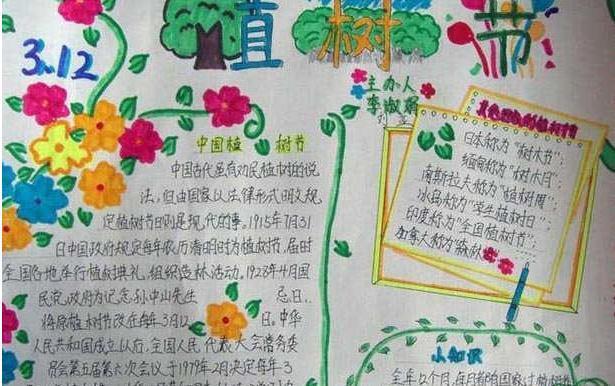 3.12
植树节
主办人
李淑娟
中国植树节
中国古代虽有劝民植树的说
法,但由国家以法律形式明文规
定植树节日则是现代的事。1915年7月31
日中国政府规定每年农历清明时为植树节,届时
全国各地举行植树典礼,组织造林活动。1928年4月国
民党政府为记念孙中山先生 忌日..
将原植树节改在每年3月12 日。中华
人民共和国成立以后,全国人民代表大会常务委
员会第五届第六次会议于1979年2月决定每年3
日本称为“树木节”;
缅甸称为“树木月”
南斯拉夫称为“植树周”
冰岛称为“学生植树日”;
印度称为“全国植树节”;
加拿大称为“森林
小知识
全年12个月,每月都有国家过的植树